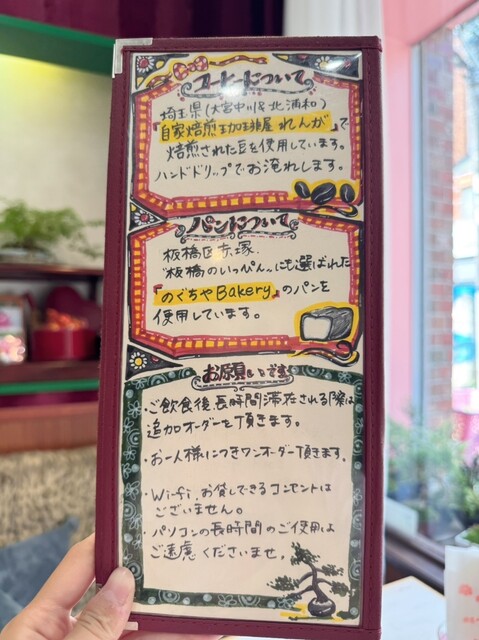 コーヒーについて
埼玉県(大宮中川&北浦和)
『自家焙煎珈琲屋 れんが』で
焙煎された豆を使用しています。
ハンドドリップでお淹れします。
パンについて
板橋区赤塚.
"板橋のいっぴん"にも選ばれた
『のぐちやBakery』のパンを
使用しています。
お願いです
・ご飲食後長時間滞在される際は
追加オーダーを頂きます。
・お一人様につきワンオーダー頂きます.
・Wi-fi. お貸しできるコンセントは
ございません。
・パソコンの長時間のご使用は
ご遠慮くださいませ.